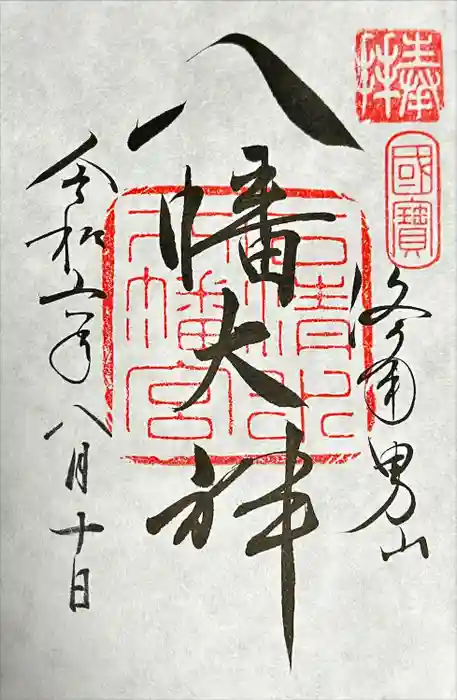 奉拝
國寶
洛南男山
八幡大神
石清水
八幡宮
令和六年八月十日